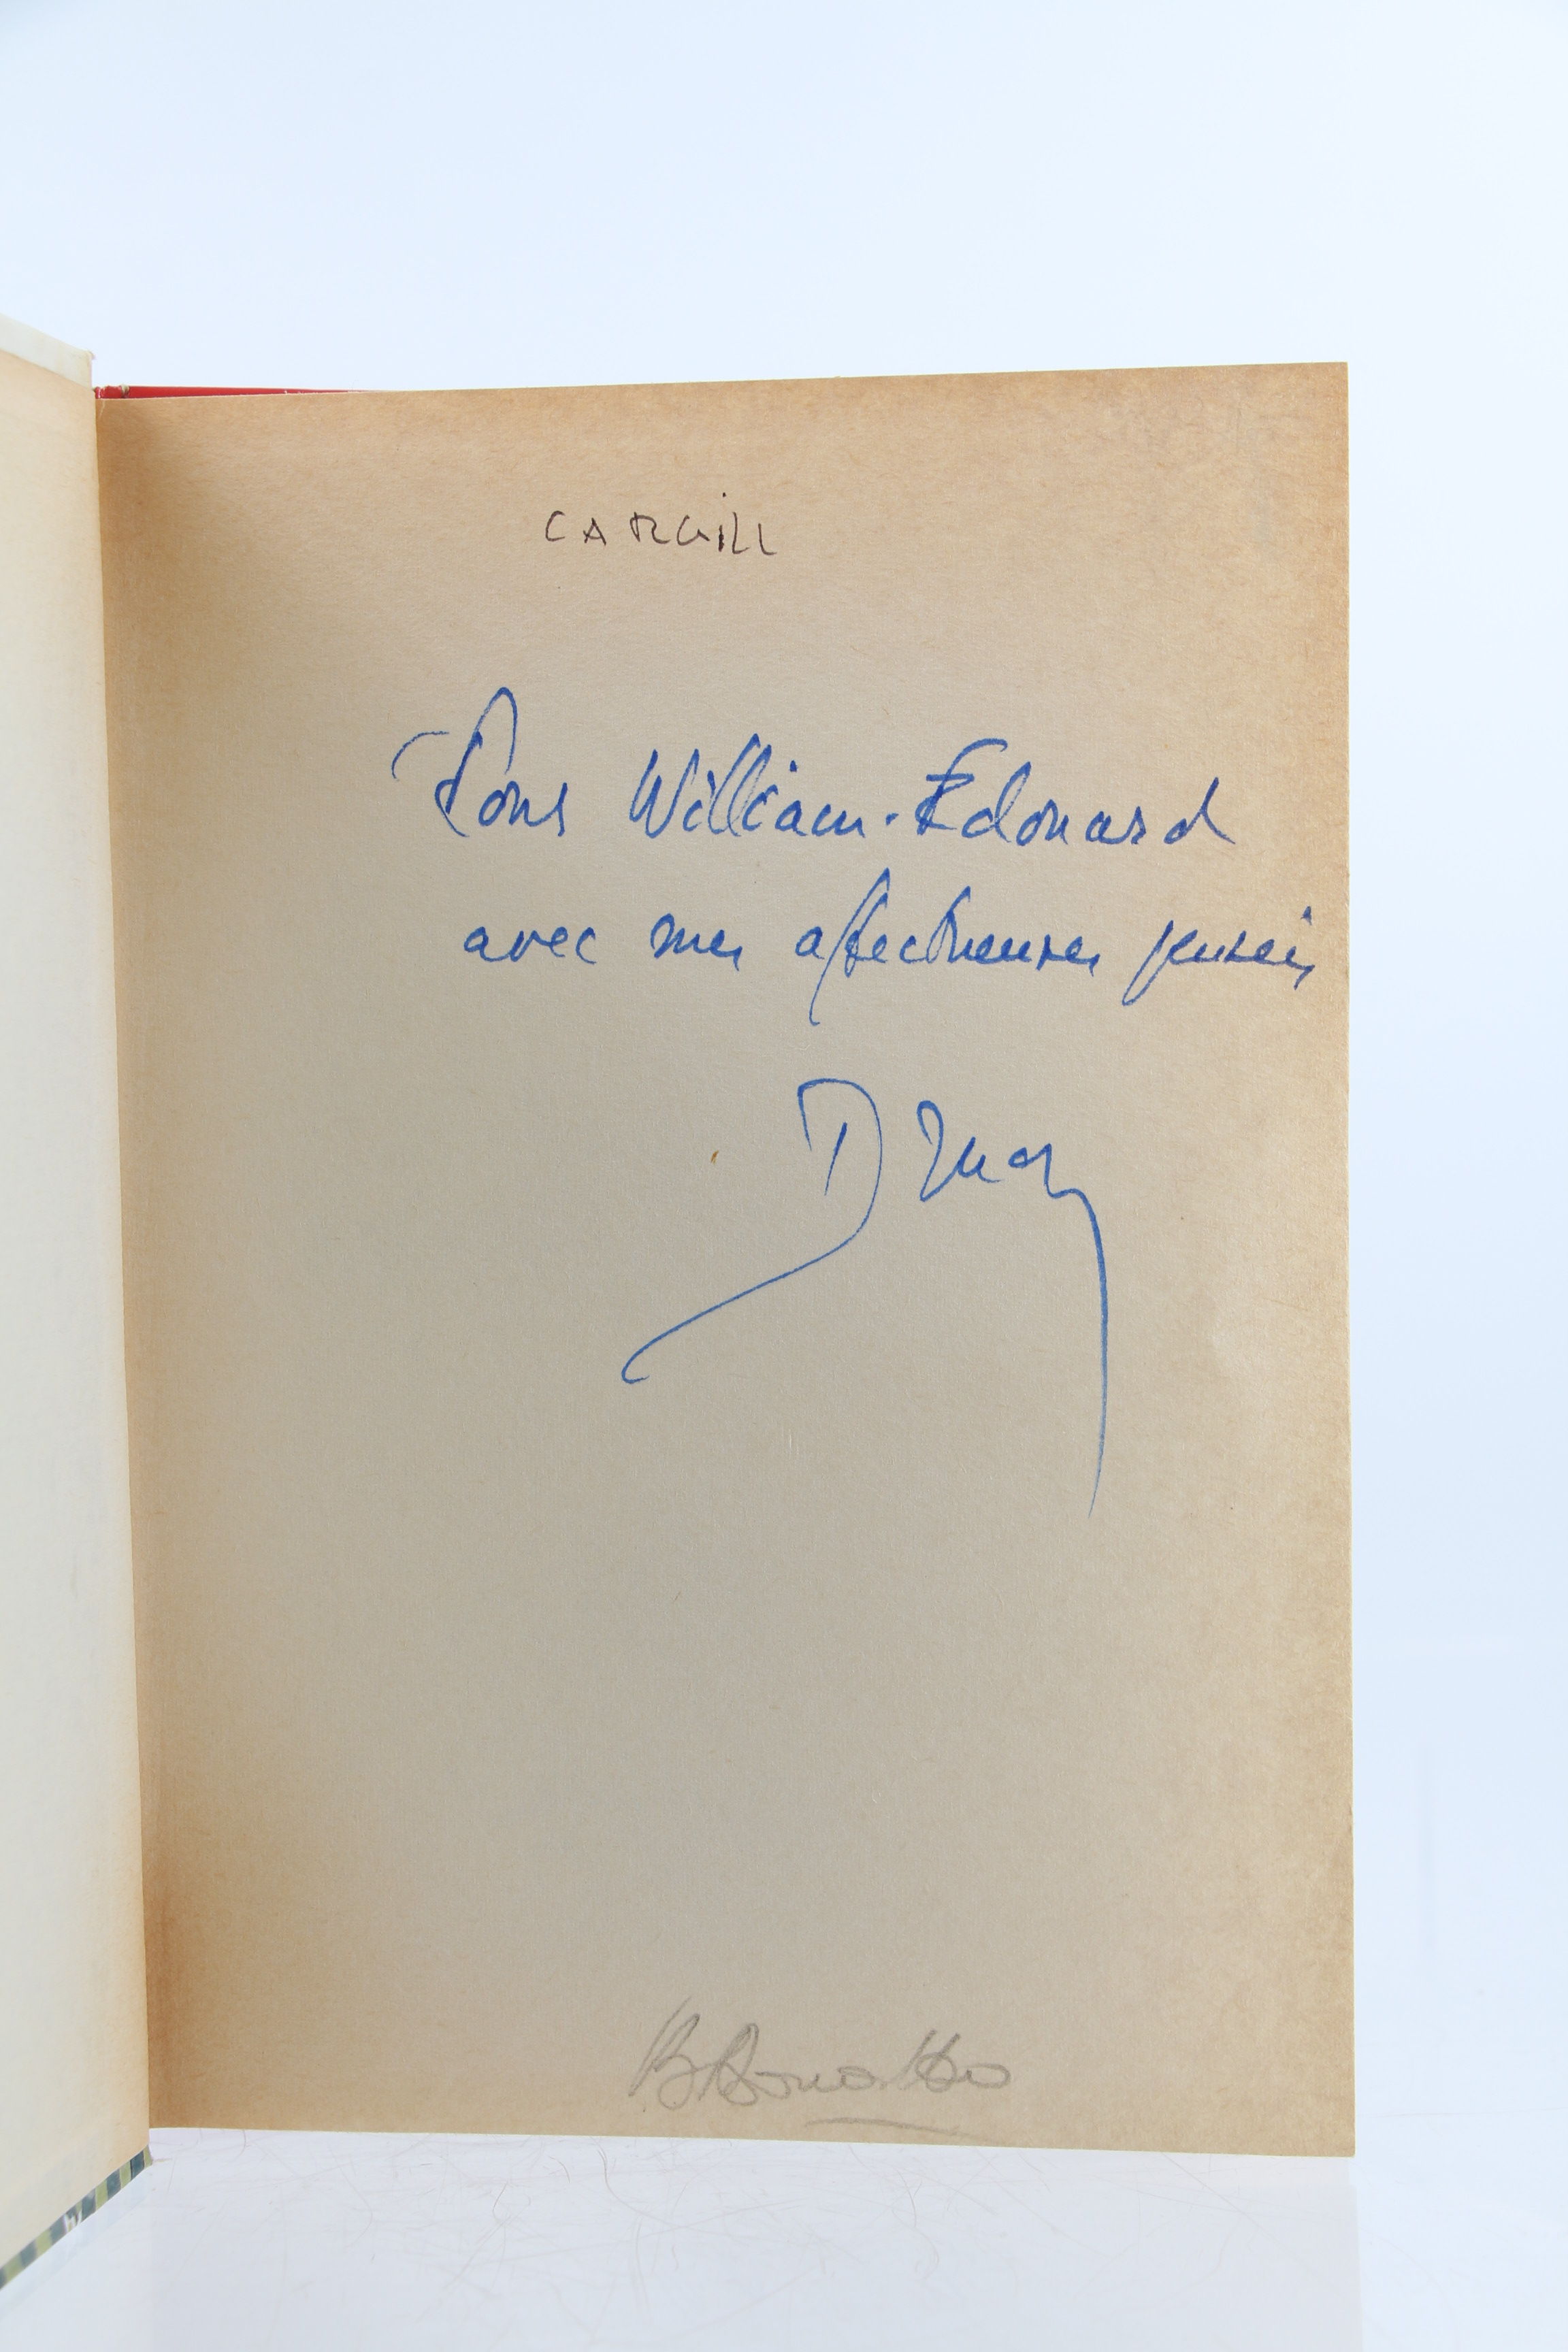 CARGILL
Pour William-Edouard
avec mes affectueuses pensées